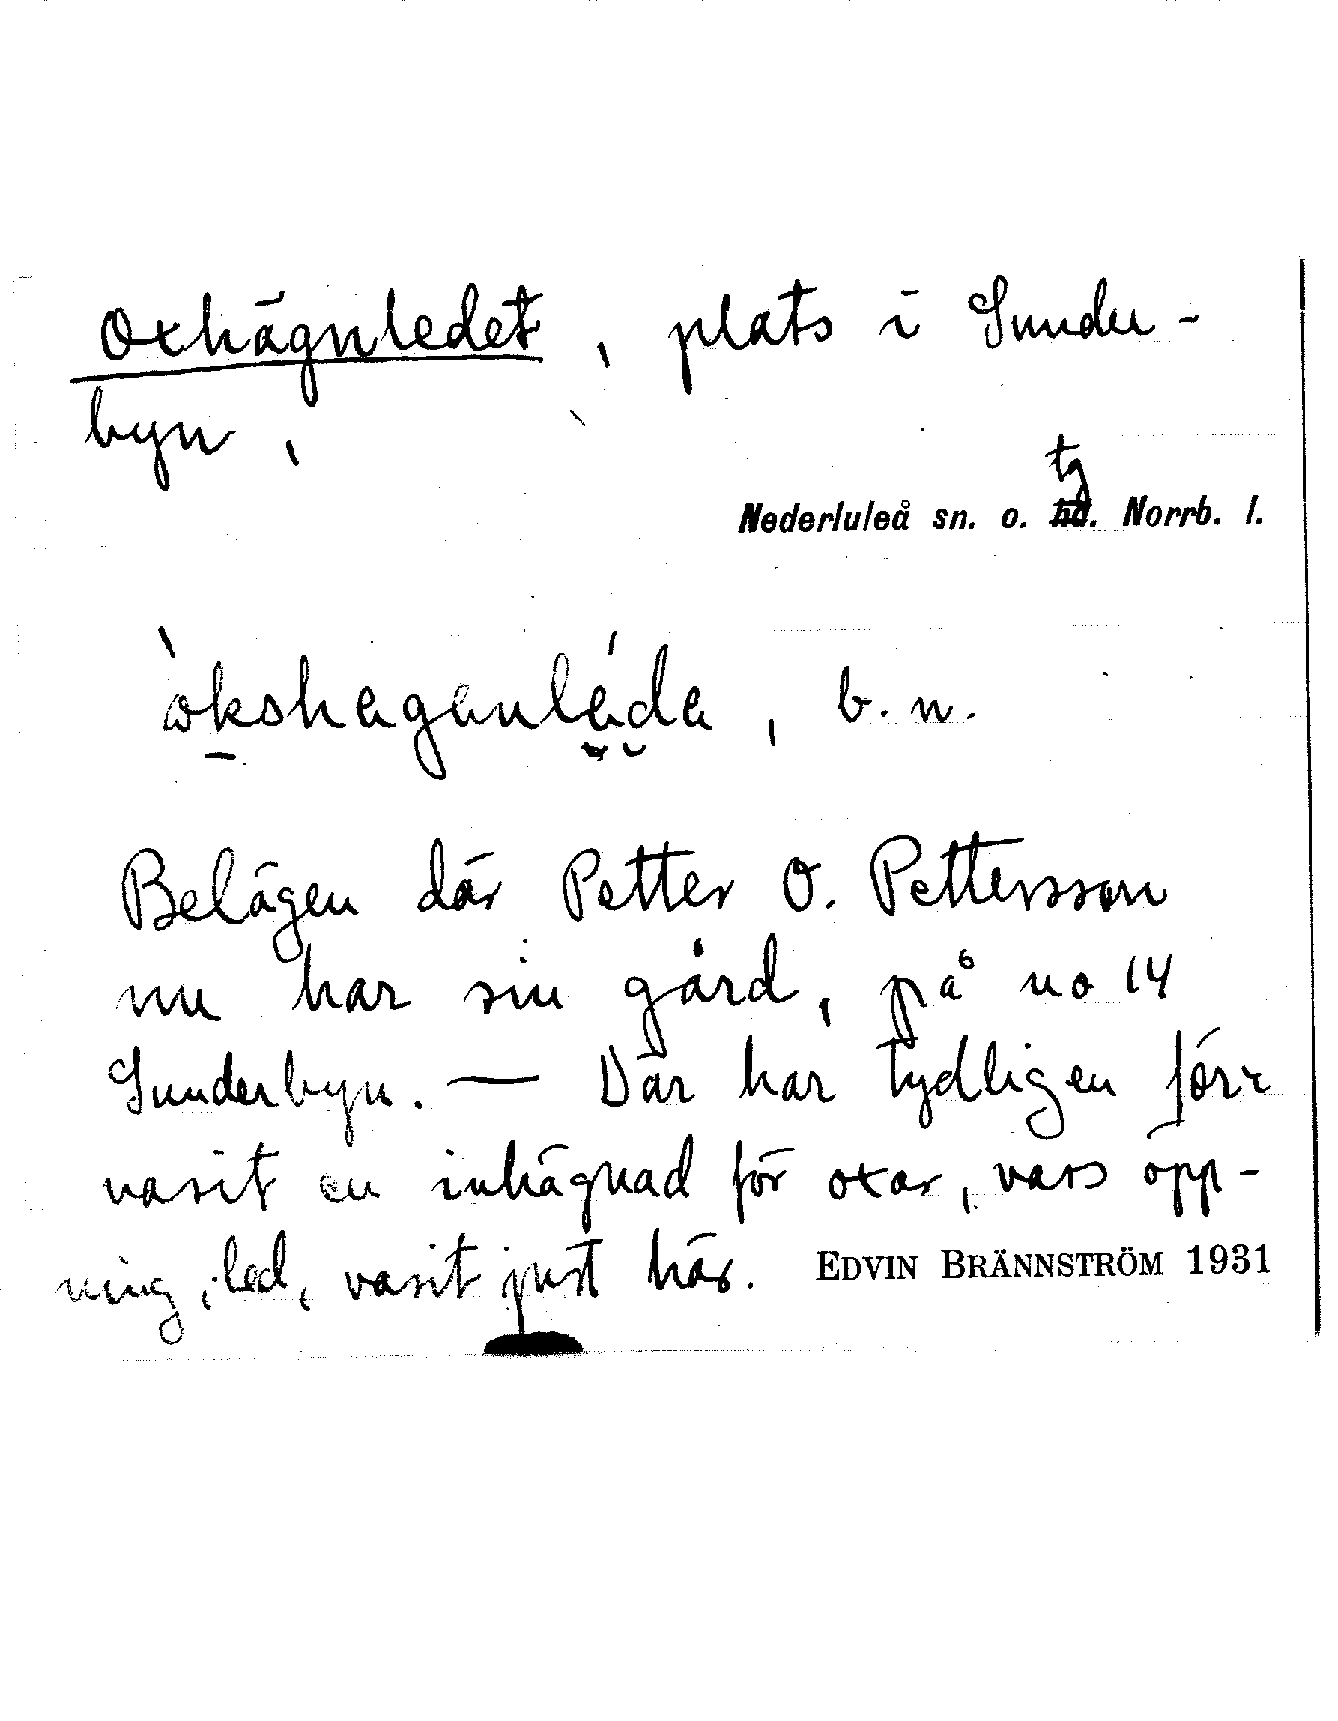 Oxhägnledet, plats i Sunder-
byn,
Nederluleå sn. o. tg. Norrb. l.
`okshaganléda, b. n.
Belägen där Petter O. Pettersson
nu har sin gård, på no 14
Sunderbyn. — Där har tydligen förr
vasit en inhägnad för oxar, vars öpp-
ning, led, vasit just här. EDVIN BRÄNNSTRÖM 1931